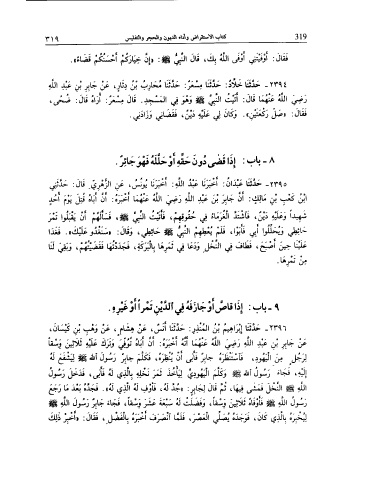 319 كتاب الاستقراض وأداء الديون والحجر والتفليس ٣١٩
فَقَالَ: أَوْفَيْتَنِي أَوْفَى اللَّهُ بِكَ، قَالَ النَّبِيُّ ﷺ: «إِنَّ خِيَارَكُمْ أَحْسَنُكُمْ قَضَاءً».
٢٣٩٤- حَدَّثَنَا خَلَّادٌ: حَدَّثَنَا مِسْعَرٌ: حَدَّثَنَا مُحَارِبُ بْنُ دِثَارٍ، عَنْ جَابِرِ بْنِ عَبْدِ اللَّهِ
رَضِيَ اللَّهُ عَنْهُمَا قَالَ: أَتَيْتُ النَّبِيَّ ﷺ وَهُوَ فِي الْمَسْجِدِ. قَالَ مِسْعَرٌ: أُرَاهُ قَالَ: ضُحًى،
فَقَالَ: «صَلِّ رَكْعَتَيْنِ». وَكَانَ لِي عَلَيْهِ دَيْنٌ، فَقَضَانِي وَزَادَنِي.
٨ - باب: إِذَا قَضَى دُونَ حَقِّهِ أَوْ حَلَّلَهُ فَهُوَ جَائِزٌ.
٢٣٩٥- حَدَّثَنَا عَبْدَانُ: أَخْبَرَنَا عَبْدُ اللَّهِ: أَخْبَرَنَا يُونُسُ، عَنِ الزُّهْرِيِّ، قَالَ: حَدَّثَنِي
ابْنُ كَعْبِ بْنِ مَالِكٍ: أَنَّ جَابِرَ بْنَ عَبْدِ اللَّهِ رَضِيَ اللَّهُ عَنْهُمَا أَخْبَرَهُ: أَنَّ أَبَاهُ قُتِلَ يَوْمَ أُحُدٍ
شَهِيداً وَعَلَيْهِ دَيْنٌ، فَاشْتَدَّ الْغُرَمَاءُ فِي حُقُوقِهِمْ، فَأَتَيْتُ النَّبِيَّ ﷺ، فَسَأَلَهُمْ أَنْ يَقْبَلُوا تَمْرَ
حَائِطِي وَيُحَلِّلُوا أَبِي فَأَبَوْا، فَلَمْ يُعْطِهِمُ النَّبِيُّ ﷺ حَائِطِي، وَقَالَ: «سَنَغْدُو عَلَيْكَ». فَغَدَا
عَلَيْنَا حِينَ أَصْبَحَ، فَطَافَ فِي النَّخْلِ وَدَعَا فِي ثَمَرِهَا بِالْبَرَكَةِ، فَجَدَدْتُهَا فَقَضَيْتُهُمْ، وَبَقِيَ لَنَا
مِنْ تَمْرِهَا.
٩ - باب: إِذَا قَاصَّ أَوْ جَازَفَهُ فِي الدَّيْنِ تَمْراً أَوْ غَيْرِهِ.
٢٣٩٦- حَدَّثَنَا إِبْرَاهِيمُ بْنُ الْمُنْذِرِ: حَدَّثَنَا أَنَسٌ، عَنْ هِشَامٍ، عَنْ وَهْبِ بْنِ كَيْسَانَ،
عَنْ جَابِرِ بْنِ عَبْدِ اللَّهِ رَضِيَ اللَّهُ عَنْهُمَا أَنَّهُ أَخْبَرَهُ: أَنَّ أَبَاهُ تُوُفِّيَ وَتَرَكَ عَلَيْهِ ثَلَاثِينَ وَسْقاً
لِرَجُلٍ مِنَ الْيَهُودِ، فَاسْتَنْظَرَهُ جَابِرٌ فَأَبَى أَنْ يُنْظِرَهُ، فَكَلَّمَ جَابِرٌ رَسُولَ اللَّهِ ﷺ لِيَشْفَعَ لَهُ
إِلَيْهِ، فَجَاءَ رَسُولُ اللَّهِ ﷺ وَكَلَّمَ الْيَهُودِيَّ لِيَأْخُذَ ثَمَرَ نَخْلِهِ بِالَّذِي لَهُ فَأَبَى، فَدَخَلَ رَسُولُ
اللَّهِ ﷺ النَّخْلَ فَمَشَى فِيهَا، ثُمَّ قَالَ لِجَابِرٍ: «جُدَّ لَهُ، فَأَوْفِ لَهُ الَّذِي لَهُ». فَجَدَّهُ بَعْدَ مَا رَجَعَ
رَسُولُ اللَّهِ ﷺ فَأَوْفَاهُ ثَلَاثِينَ وَسْقاً، وَفَضَلَتْ لَهُ سَبْعَةَ عَشَرَ وَسْقاً، فَجَاءَ جَابِرٌ رَسُولَ اللَّهِ ﷺ
لِيُخْبِرَهُ بِالَّذِي كَانَ، فَوَجَدَهُ يُصَلِّي الْعَصْرَ، فَلَمَّا انْصَرَفَ أَخْبَرَهُ بِالْفَضْلِ، فَقَالَ: «أَخْبِرْ ذَلِكَ